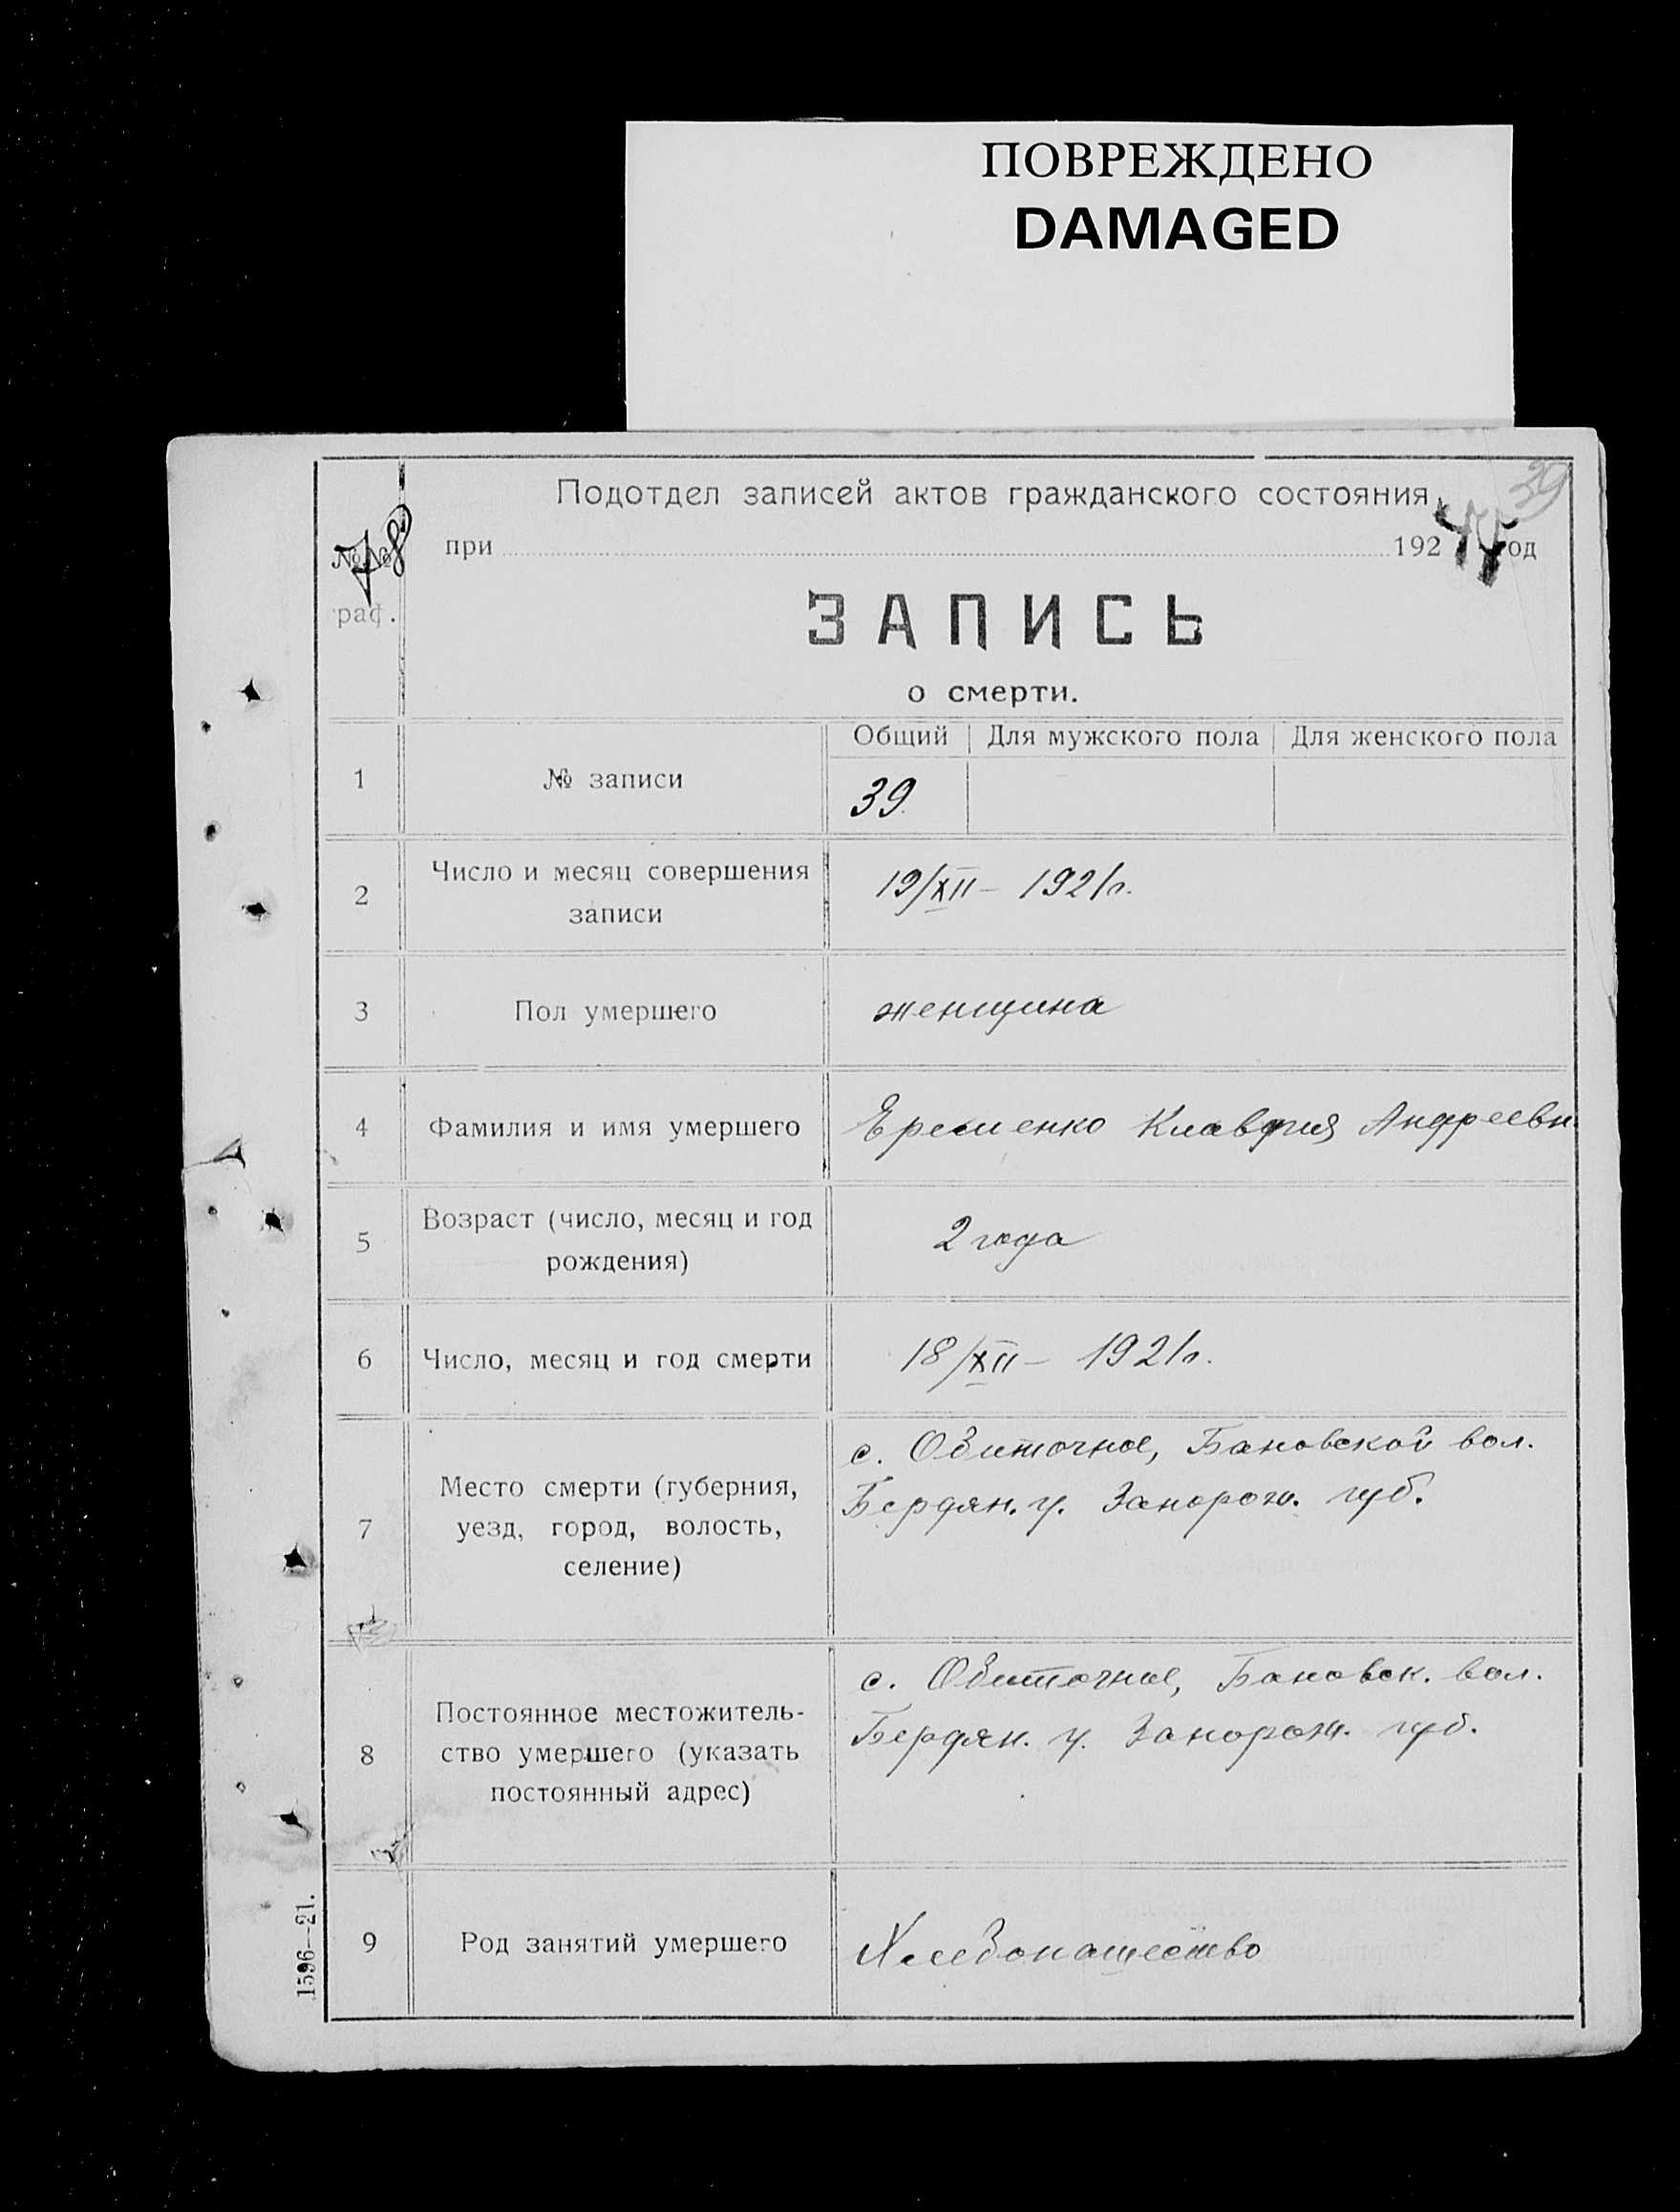 ПОВРЕЖДЕНО
DAMAGED
39
Подотдел записей актов гражданского состояния,
№№ 78
при 192 год
граф.
ЗАПИСЬ
о смерти.
Общий Для мужского пола Для женского пола
1 № записи 39
2 Число и месяц совершения
записи
19/XII – 1921 г.
3 Пол умершего женщина
4 Фамилия и имя умершего Еременко Клавдия Андреевн.
5 Возраст (число, месяц и год
рождения)
2 года
6 Число, месяц и год смерти 18/XII – 1921 г.
7 Место смерти (губерния,
уезд, город, волость,
селение)
с. Обиточное, Бановской вол.
Бердян. у. Запорож. губ.
8 Постоянное местожитель-
ство умершего (указать
постоянный адрес)
с. Обиточное, Бановск. вол.
Бердян. у. Запорож. губ.
9 Род занятий умершего Хлебопашество
1596—21.